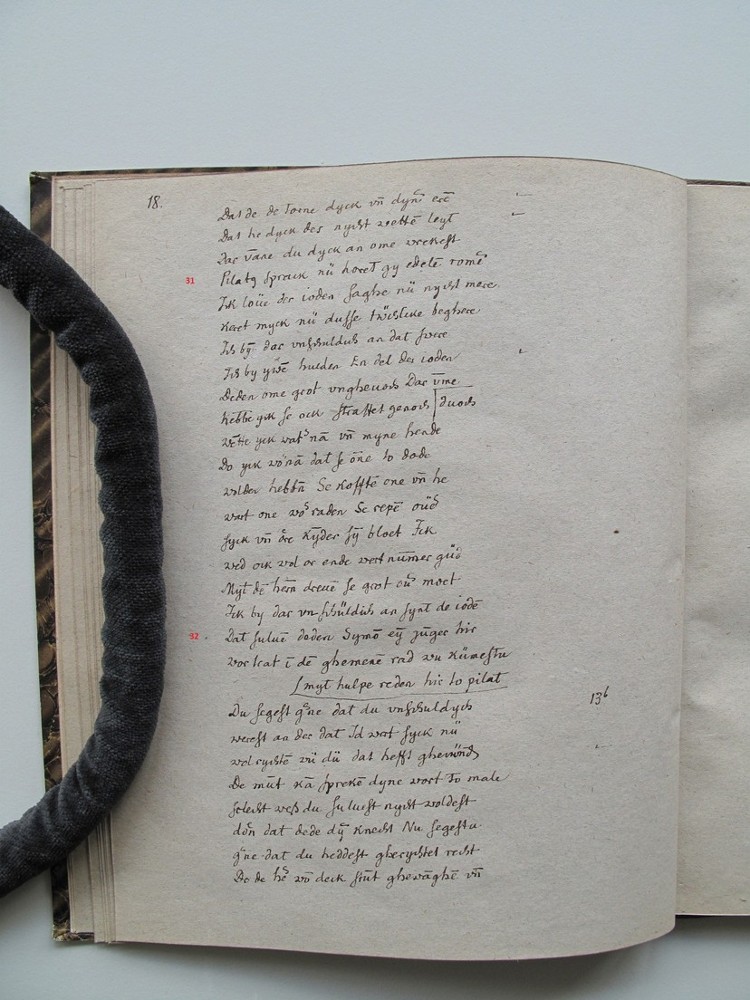 18.
Dat de de torne dyck vn̄ dyne
Dat he dyck des nycht wolte leyt
Dar vāne du dyck an ome wrekest
31
Pilatꝯ sprack nū horet gy edele rome
Ick loüe der ioden saghe nū nycht mere
Keret myck nū dusse twistlike beghere
Ick bȳ dar vnschuldich an dat swere
Ick by ywē hulden En del der ioden
Deden ome grot vngheuoch Dar vme
Hebbe yck se ock straffet genoch | duorch
wette yck wat nā vn̄ myne hende
Do yck wo nā dat se ōne to dode
wolden hebbn̄ Se koffte one vn̄ he
wart one vorraden Se repē
syck vn̄ ore kynder sȳ bloet Ick
wed ock wol or ende wert nūmer gūd
Myt dē hern dreue se grot moet
Ick by dar vnschüldich an synt de iodē
32
Dat sulue deden Symō eȳ jūger hir
vor trat ī dē ghemenē rad
myt hulpe reden hir to pilat
Du segest gne dat du vnschuldych
13b
werest an der dat Id wert syck nū
wol rychtē vn̄ dū dat heffst
De mūt kā sprekē dyne wort to male
slecht weß du suluest nycht woldest
don dat dede dȳ knecht Nu segestu
gne dat du heddest gherychtet recht
Do de he vō deck sint ghewāghē vn̄